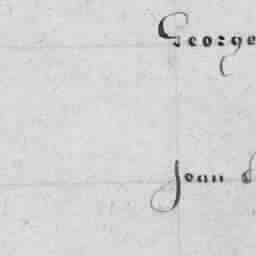 George
Joan